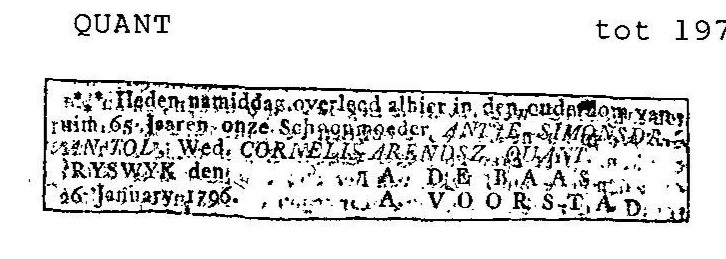 QUANT
tot 197
*⁎* Heden namiddag overleed alhier in den ouderdom van
ruim 65 Jaaren onze Schoonmoeder ANTJE SIMONSDR.
VAN TOL, Wed. CORNELIS ARENDSZ. QUANT.
RYSWYK den A. DE BAAS.
26 January 1796. A. VOORSTAD.